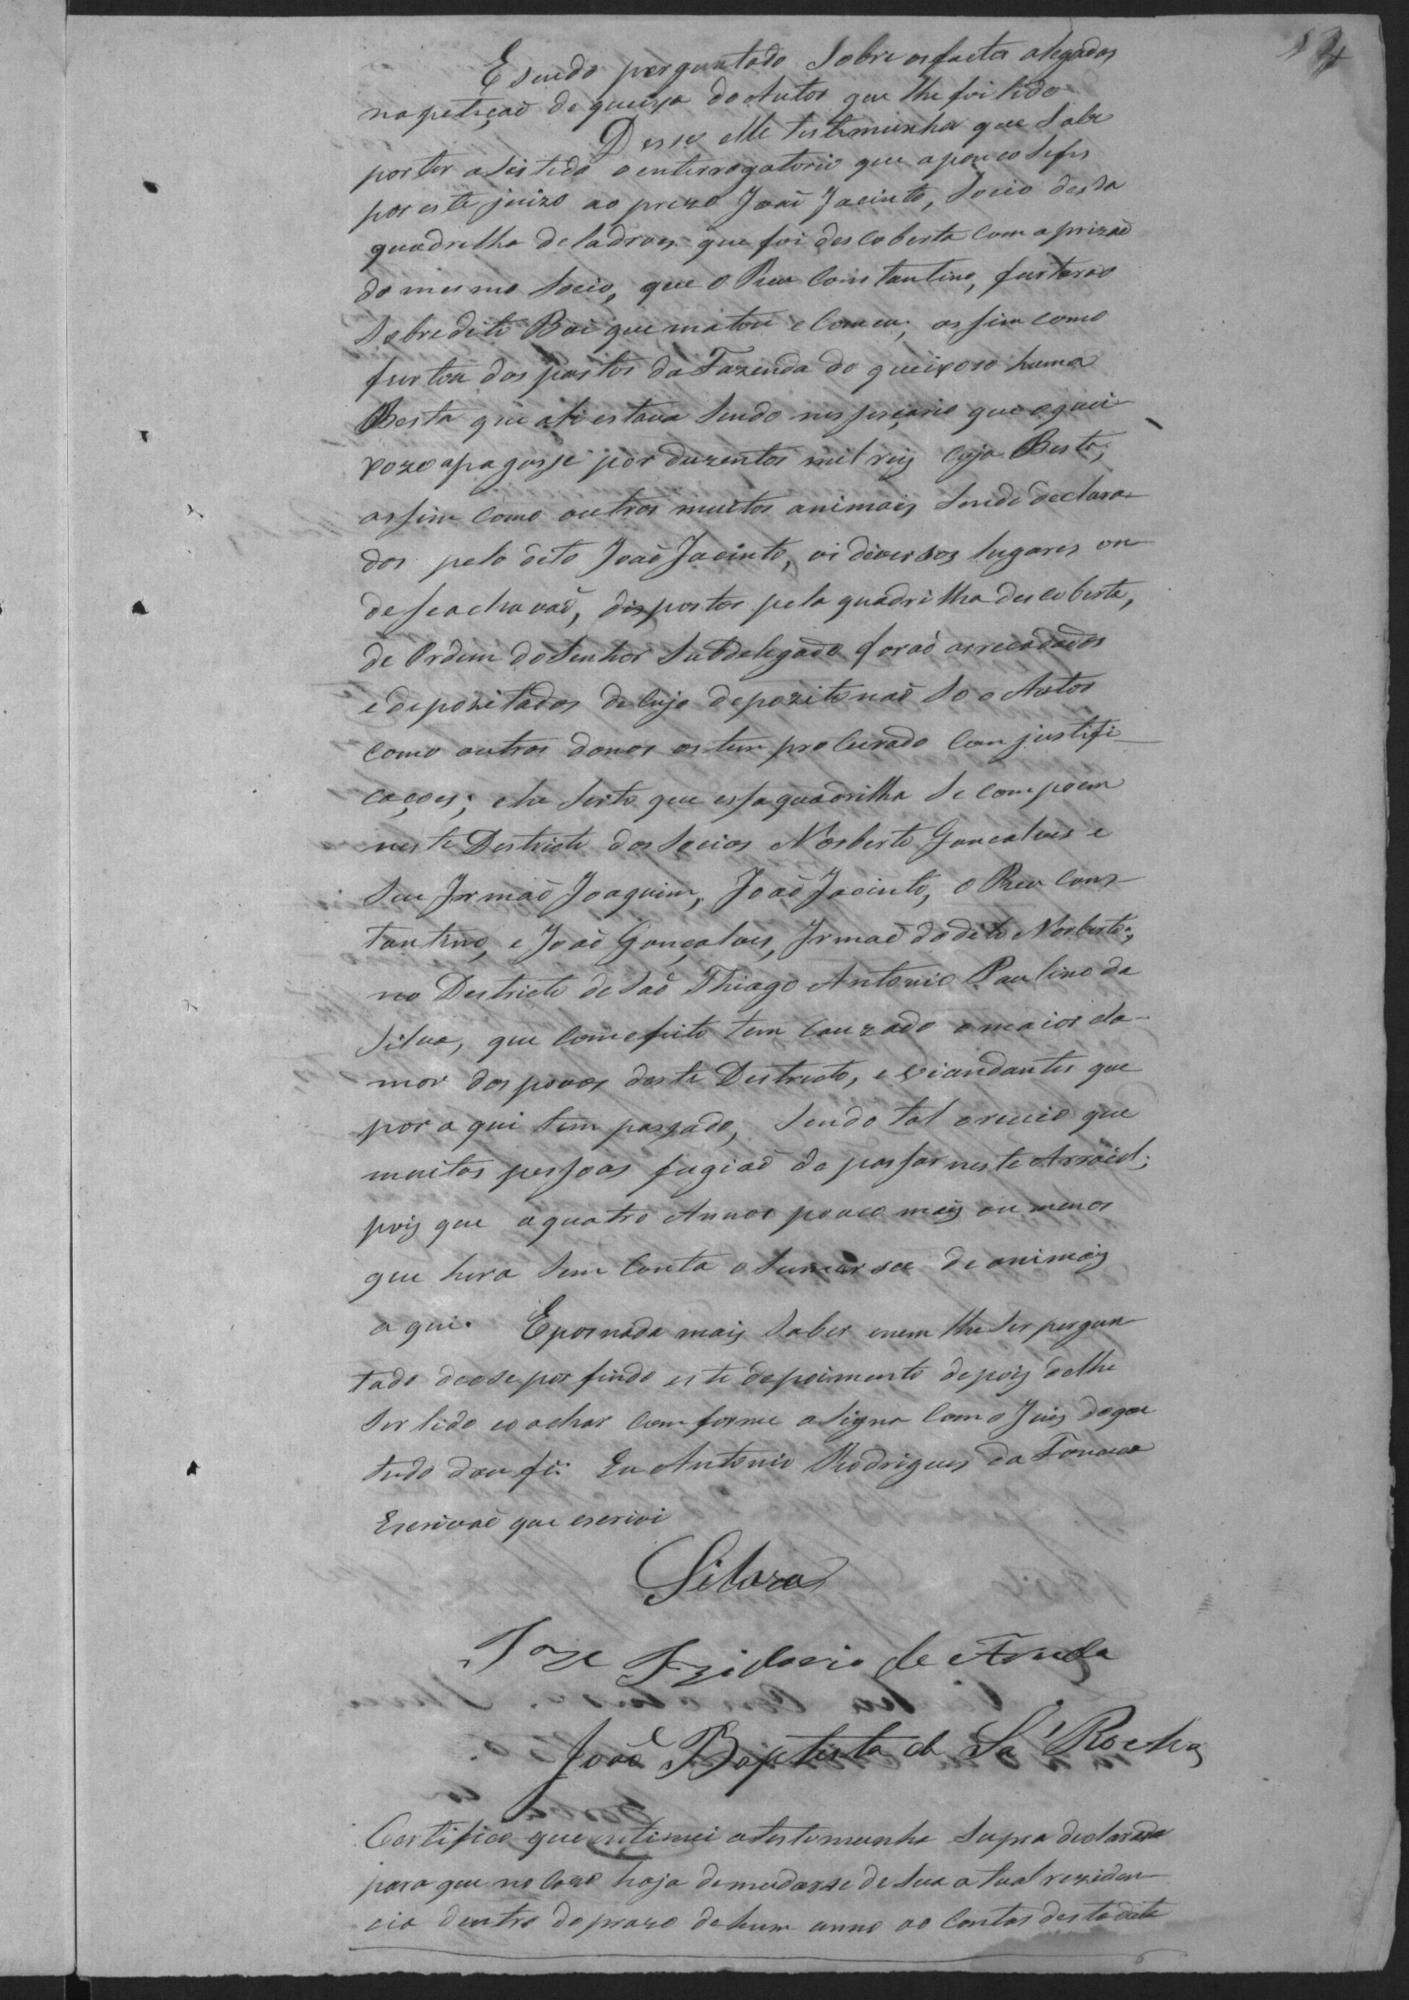 E sendo perguntado Sobre os factos alegados
na petiçaõ de queixa do Autor que lhe foi lido
Disse elle testemunha que Sabe
por ter asistido o enterrogatorio que a pouco Se fes
por este juizo ao prezo Joaõ Jacinto, Socio desda
quadrilha de ladroes que foi descoberta com a prizaõ
do mesmo Socio, que o Reu Constantino, furtara o
Sobredito Boi que matou e comeu; assim como
furtou dos pastos da Fazenda do queixoso huma
Besta que ali estava Sendo nesseçario que o quei-
xozo a pagasse por duzentos mil reis cuja Besta,
assim como outros muitos animais Sendo declara-
dos pelo dito Joaõ Jacinto, os diversos lugares on-
de Se achavaõ, dispostos pela quadrilha descoberta,
de Ordem do Senhor Subdelegado foraõ arrecadados
e depozitados de cujo depozito naõ So o Autor
como outros donos os tem procurado com justifi-
caçoes; e he Serto que essa quadrilha Se compoem
neste Destricto dos Socios Norberto Gonçalves e
Seu Jrmaõ Joaquim, Joaõ Jacinto, o Reu Cons-
tantino, e Joaõ Gonçalves, Jrmaõ do dito Norberto;
no Destricto de Saõ Thiago Antonio Paulino da
Silva, que com efeito tem cauzado o maior cla-
mor dos povos deste Destricto, e viandantes que
por aqui tem passado, Sendo tal o receio que
muitas pessoas fugiaõ de passar neste Arraial;
pois que a quatro Annos pouco mais ou menos
que hera Sem Conta o Sumirse de animais
aqui. E por nada mais Saber e nem lhe Ser pergun-
tado deose por findo este depoimento depois de lhe
Ser lido e o achar comforme asigna com o Juis do que
tudo dou fé. Eu Antonio Rodrigues da Fonseca
Escrivaõ que escrivi
Joze Izidorio de Arruda
Joaõ Baptista de Sá Rocha
Certifico que entimei a testemunha Supra declarada
para que no cazo haja de mudarse de Sua atual reziden-
cia dentro do prazo de hum anno ao contar desta data